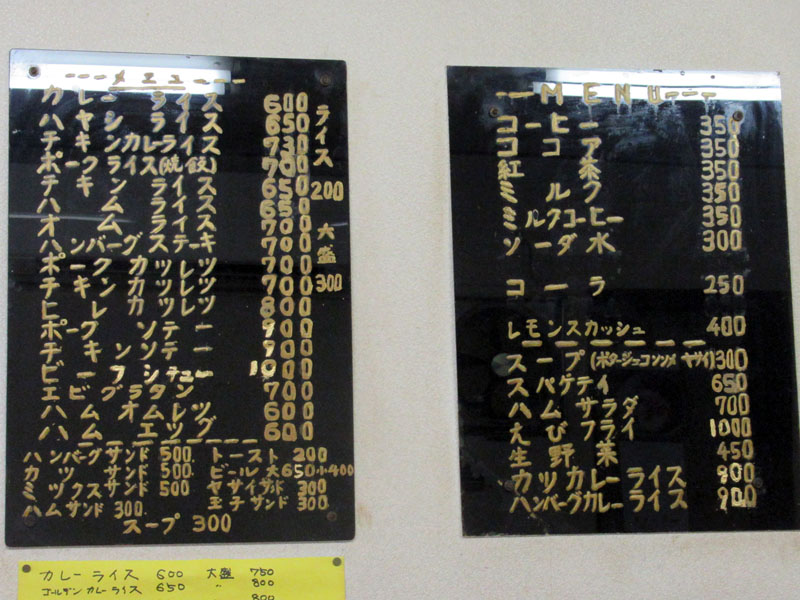 ---メニュー---
カレーライス 600
ハヤシライス 650
チキンカレーライス 730
ポークライス(焼餃) 700
チキンライス 650
ハムライス 650
オムライス 700
ハンバーグステーキ 700
ポークカツレツ 700
チキンカツレツ 700
ヒレカツレツ 800
ポークソテー 900
チキンソテー 900
ビーフシチュー 1000
エビグラタン 700
ハムオムレツ 600
ハムエツグ 600
ライス 200 大盛 300
ハンバーグサンド 500. トースト 200
カツサンド 500. ビール大650小400
ミックスサンド 500 ヤサイサンド 300
ハムサンド 300. 玉子サンド 300
スープ 300
カレーライス 600 大盛 750
ゴールデンカレーライス 650 〃 800
800
---MENU---
コーヒー 350
ココア 350
紅茶 350
ミルク 350
ミルクコーヒー 350
ソーダ水 300
コーラ 250
レモンスカッシュ 400
スープ(ポタージュコンソメヤサイ)300
スパゲテイ 650
ハムサラダ 700
えびフライ 1000
生野菜 450
カツカレーライス 900
ハンバーグカレーライス 900